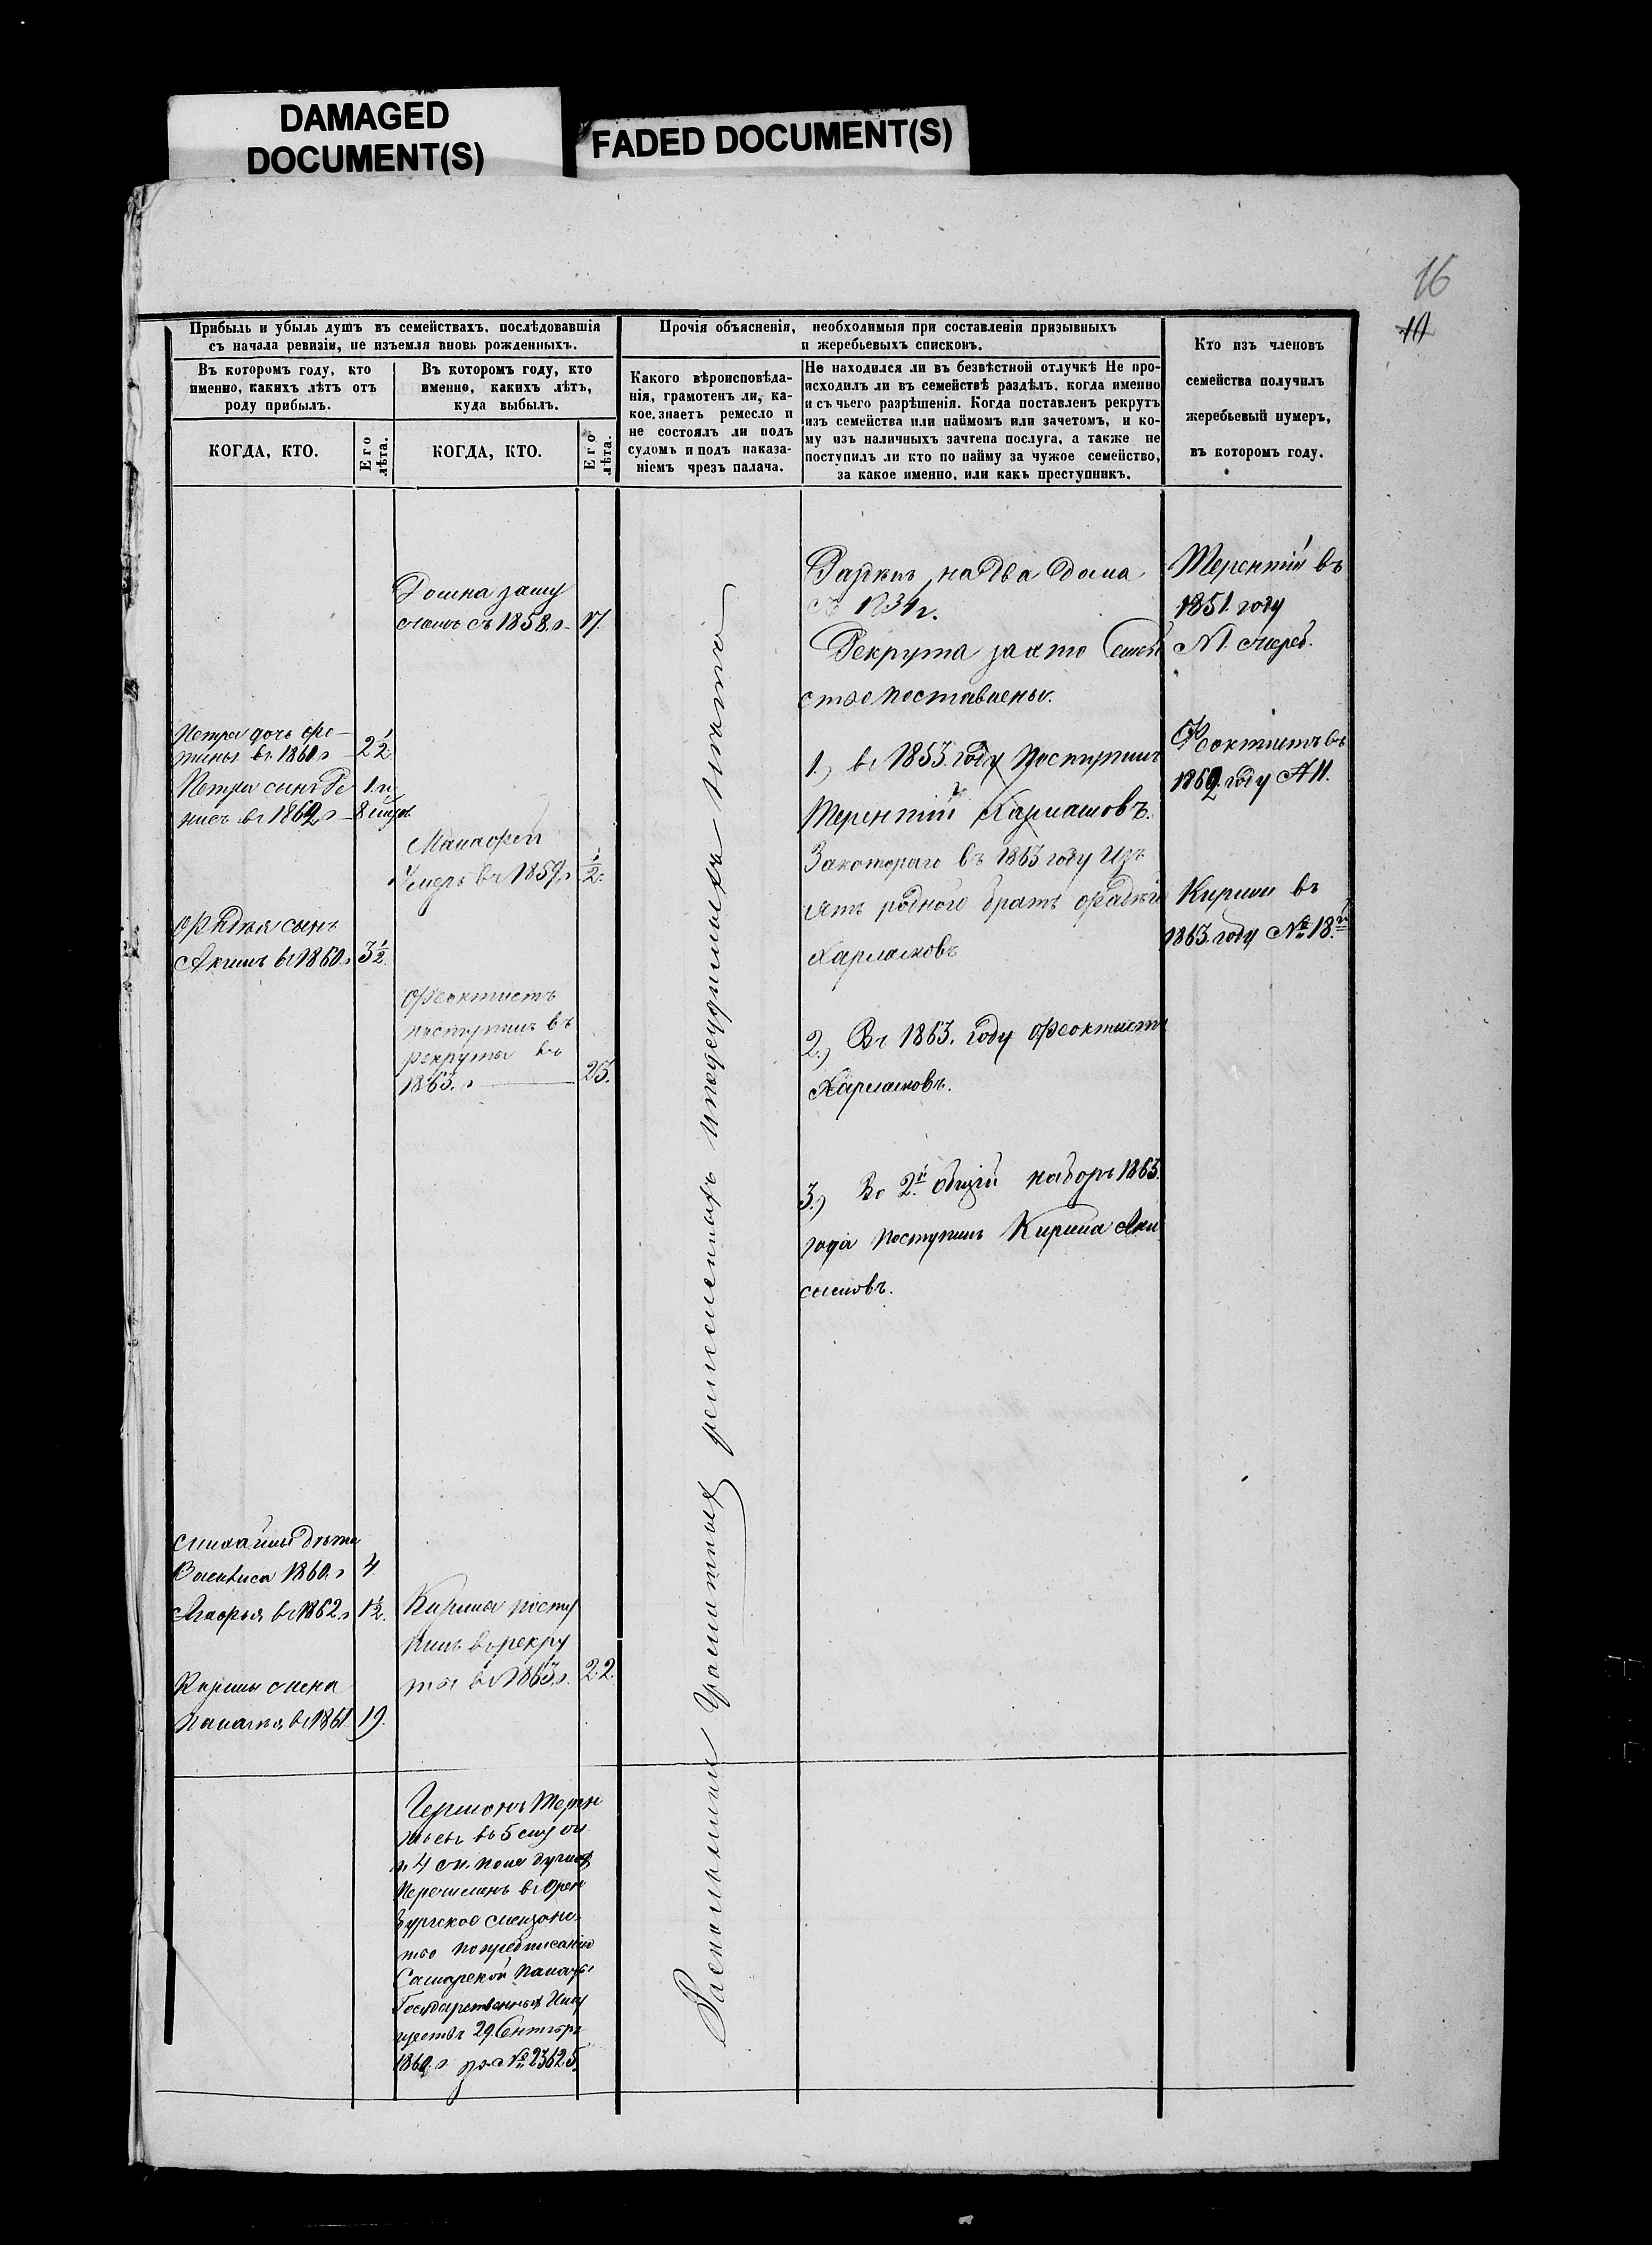 DAMAGED
DOCUMENT(S)
FADED DOCUMENT(S)
16
10
Прибыль и убыль душъ въ семействахъ, послѣдовавшія
съ начала ревизіи, не изъемля вновь рожденныхъ.
Въ которомъ году, кто
именно, какихъ лѣтъ отъ
роду прибылъ.
КОГДА, КТО.
Его
лѣта.
Въ которомъ году, кто
именно, какихъ лѣтъ,
куда выбылъ.
КОГДА, КТО.
Его
лѣта.
Прочія объясненія, необходимыя при составленіи призывныхъ
и жеребьевыхъ списковъ.
Какого вѣроисповѣда-
нія, грамотенъ ли, ка-
кое знаетъ ремесло и
не состоялъ ли подъ
судомъ и подъ наказа-
ніемъ чрезъ палача.
Не находился ли въ безвѣстной отлучкѣ Не про-
исходилъ ли въ семействѣ раздѣлъ, когда именно
и съ чьего разрѣшенія. Когда поставленъ рекрутъ
изъ семейства или наймомъ или зачетомъ, и ко-
му изъ наличныхъ зачтена послуга, а также не
поступилъ ли кто по найму за чужое семейство,
за какое именно, или какъ преступникъ.
Кто изъ членовъ
семейства получилъ
жеребьевый нумеръ,
въ которомъ году.
Петра дочь Фе-
тинья въ 1860 г 2½
Петра сынъ Де
нисъ въ 1862 г
1. и
8 мѣс
сынъ
Акимъ въ 1860 г 3½
Михайлы дѣти
Василиса 1860 г 4
Агафья въ 1862 г 1½
Кирилы жена
Палагея въ 1861 19.
заму
съ 1858 г 17.
Малафей
Умеръ въ 1859 г ½
Феоктистъ
поступилъ въ
рекруты въ
1863 г 23.
Кирила посту
пилъ в рекру
ты въ 1863 г. 22.
въ 5
и 4
Перечисленъ в Орен
бургское
по предписанію
Самарской Палаты
Государственныхъ Иму
ществъ 29 Сентября
1860 г за № 23625.
Раскольники Грамотныхъ ремесленныхъ и подсудимыхъ
на два дома
Рекрута за это Семей
ство поставлены.
1.) въ 1853 году поступилъ
Терентій
За котораго въ 1863 году Изъ
ятъ роднаго братъ
Харламовъ
2.) Въ 1863. году Феоктистъ
Харламовъ.
3.) Во 2й общій наборъ 1863
года поступилъ Кирила
Терентій въ
1851 году
№ 1. жереб.
Феоктистъ въ
1862 году № 11.
Кирила въ
1863 году № 18й